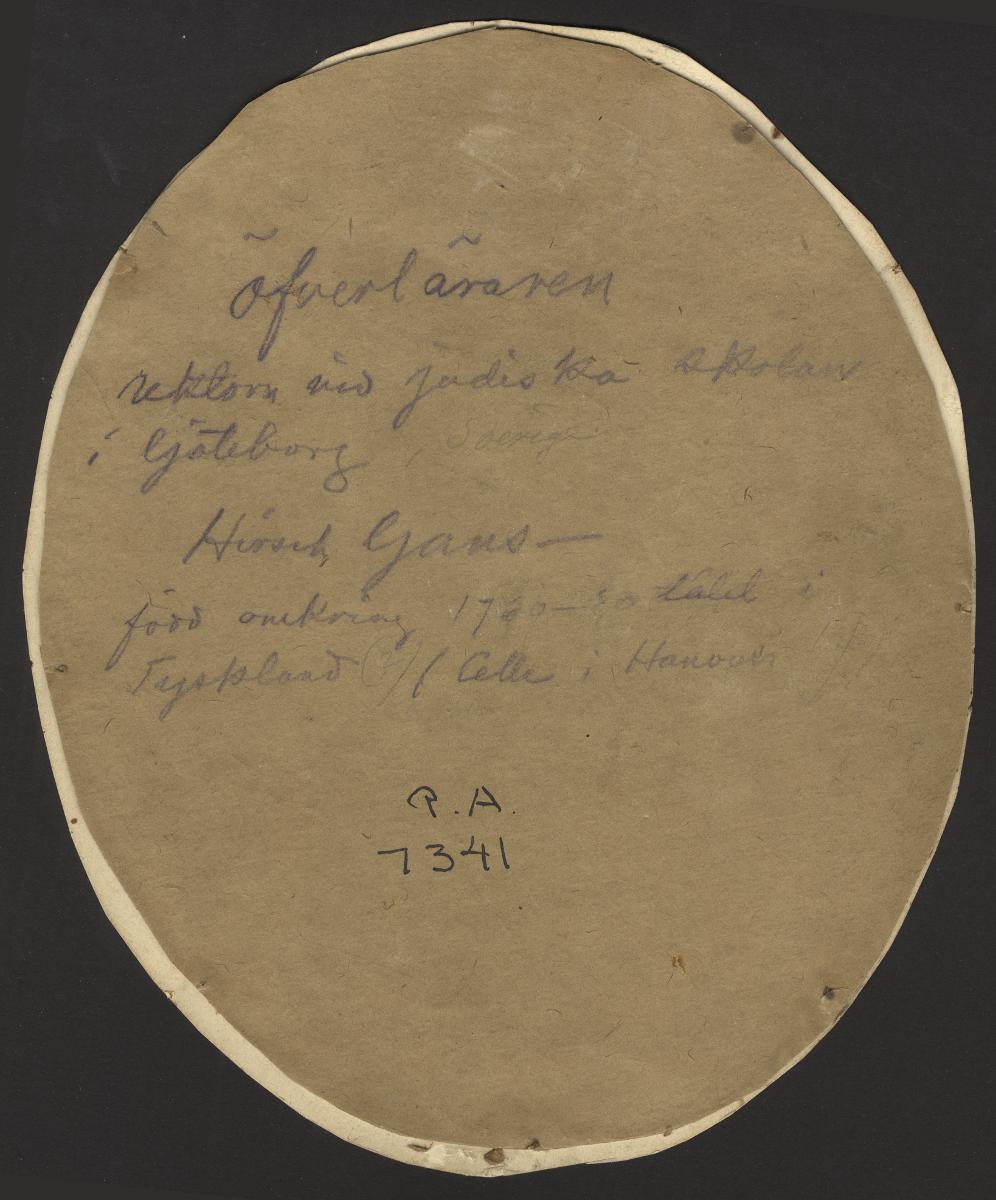 öfverläraren
rektorn vid judiska skolan
i Göteborg Sverige
Hirsch Gans —
född omkring 1760-80 talet i
Tyskland (?) ( Celle i Hanover )
R.A.
7341